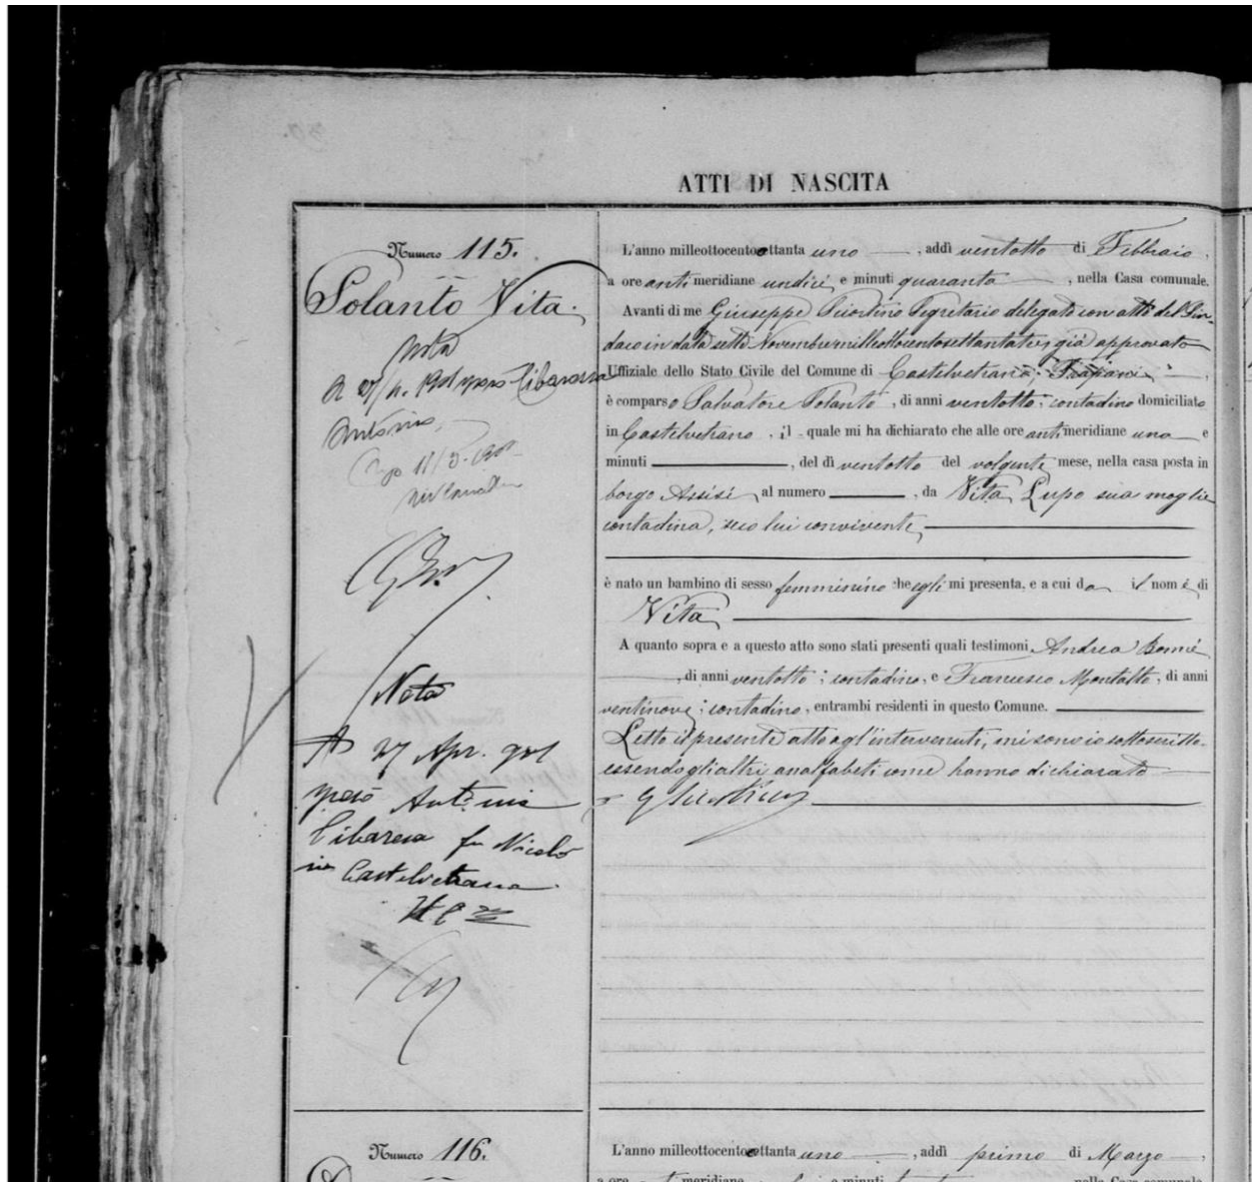 ATTI DI NASCITA
Numero 115.
Solanto Vita
Nota
A 27 1901 sposò Tibaresa
Antonino
Nota
A 27 Apr. 901
sposò
Tibaresa fu Nicolò
in Castelvetrano
L'anno milleottocentottanta uno, addì ventotto di Febbraio,
a ore antimeridiane undici e minuti quaranta, nella Casa comunale.
Avanti di me Giuseppe Sciortino Segretario delegato con atto del Sin-
daco in data sette Novembre milleottocentosettantatre, già approvato
Uffiziale dello Stato Civile del Comune di Castelvetrano; Trapani
è comparso Salvatore Solanto, di anni ventotto; contadino domiciliato
in Castelvetrano, il quale mi ha dichiarato che alle ore antimeridiane una e
minuti, del dì ventotto del volgente mese, nella casa posta in
borgo Assisi al numero, da Vita Lupo sua moglie
contadina, seco lui convivente,
è nato un bambino di sesso femminino che egli mi presenta, e a cui dà il nome di
Vita
A quanto sopra e a questo atto sono stati presenti quali testimoni Andrea
, di anni ventotto; contadino, e Francesco Montalto, di anni
ventinove; contadino, entrambi residenti in questo Comune.
Letto il presente atto agl'intervenuti, mi sono io sottoscritto
essendo gli altri analfabeti come hanno dichiarato
Numero 116.
L'anno milleottocentottanta uno, addì primo di Marzo,
a ore meridiane e minuti nella Casa comunale